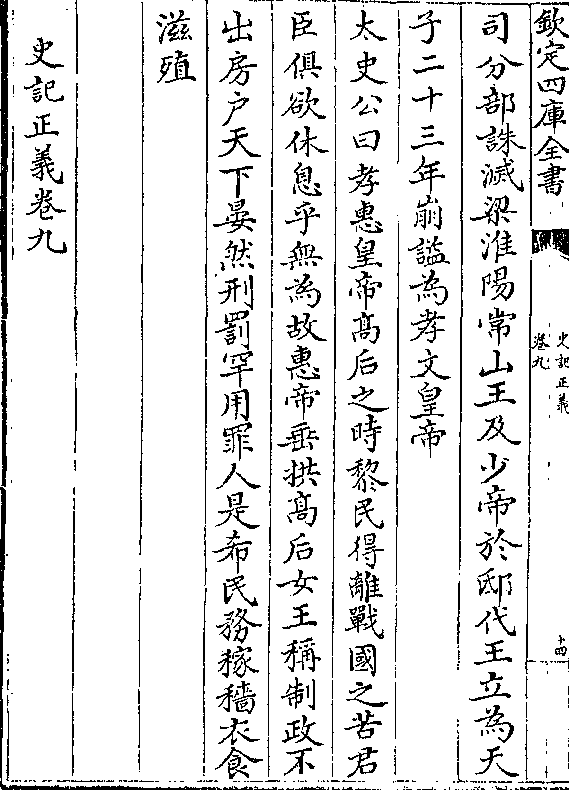 欽定四庫全書
史記正義
卷九
十四
司分部誅滅梁淮陽常山王及少帝於邸代王立為天
子二十三年崩謚為孝文皇帝
太史公曰孝惠皇帝髙后之時黎民得離戰國之苦君
臣俱欲休息乎無為故惠帝垂拱髙后女王稱制政不
出房户天下晏然刑罰罕用罪人是希民務稼穡衣食
滋殖
史記正義卷九